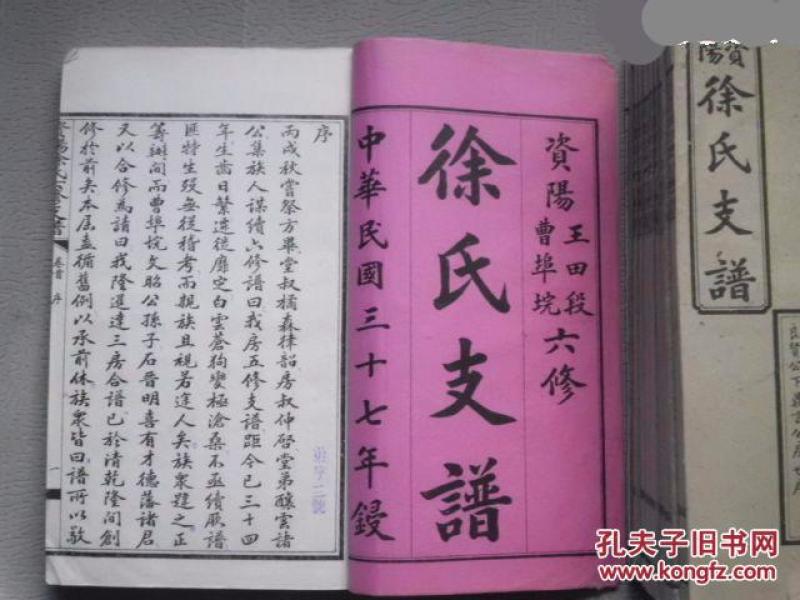 資陽王田段曹埠垸六修
徐氏支譜
中華民國三十七年鋟
序
丙戌秋嘗祭方畢堂叔橘森律韶房叔仲啓堂弟釀雲諸
公集族人謀續六修譜曰我房五修支譜距今已三十四
年生齒日繁遷徙靡定白雲蒼狗變極滄桑不亟續厥譜
匪特生殁無從稽考而親族且視若途人矣族衆韙之正
籌辦間而曹埠垸文昭公孫子石晉明喜有才德藩諸君
又以合修為請曰我隆選達三房合譜已於清乾隆間創
修於前矣本屆盍循舊例以承前休族衆皆曰譜所以敬
卷首 序
一
資陽
徐氏支譜
孔夫子旧书网
www.kongfz.com